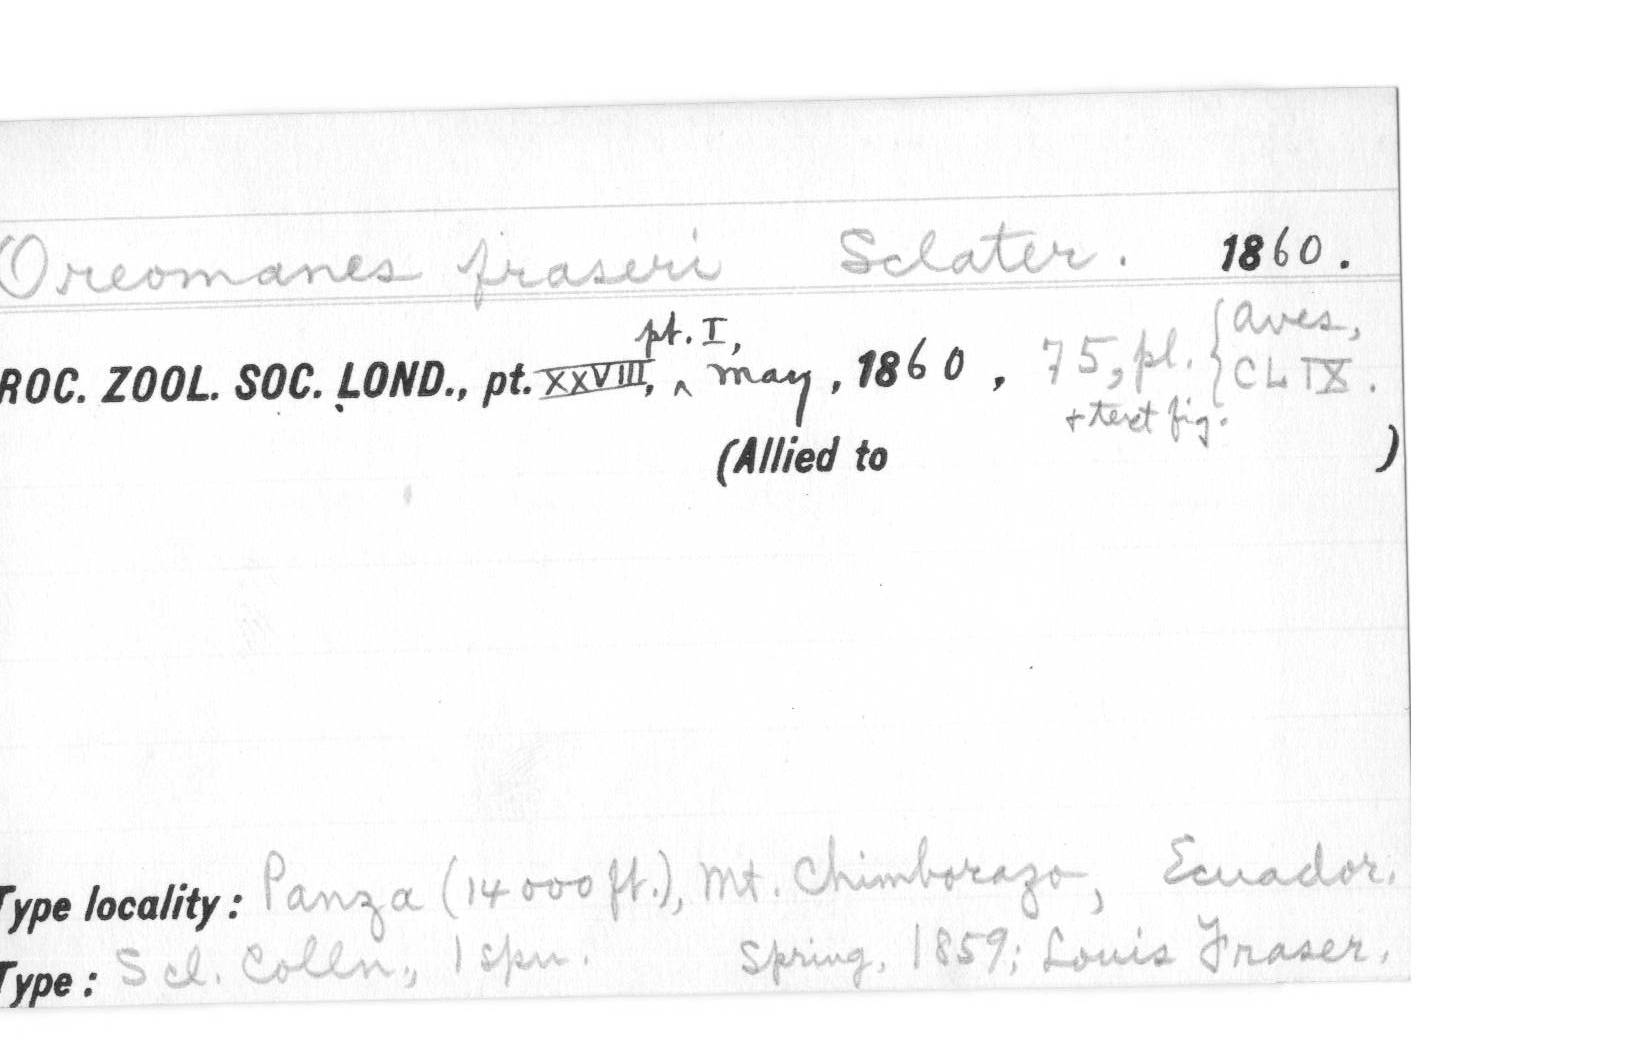 Oreomanes fraseri Sclater. 1860.
ROC. ZOOL. SOC. LOND., pt. XXVIII, ^ pt. I, May, 1860, 75, pl. { Aves, CLIX.
+ text fig.
(Allied to )
Type locality: Panza (14000 ft.), Mt. Chimborazo, Ecuador.
Type: Scl. Colln., 1 spn. Spring, 1859; Louis Fraser.